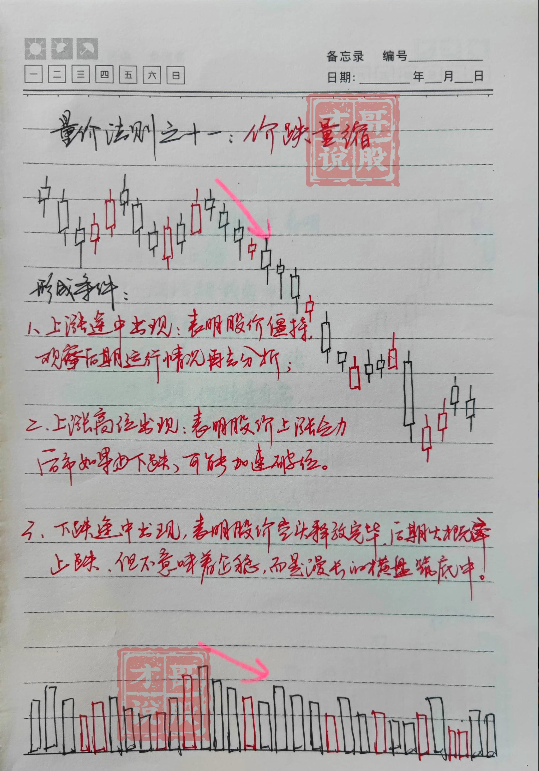 备忘录 编号
一 二 三 四 五 六 日
日期: 年 月 日
量价法则之十一:价跌量缩
才哥
说股
形成条件:
1、上涨途中出现:表明股价僵持,
观察后期运行情况再去分析;
二、上涨高位出现:表明股价上涨乏力
后市如果也下跌、可能加速破位。
3、下跌途中出现,表明股价空头释放完毕,后期大概率
止跌、但不意味着企稳,而是漫长的横盘筑底中!
才哥
说股